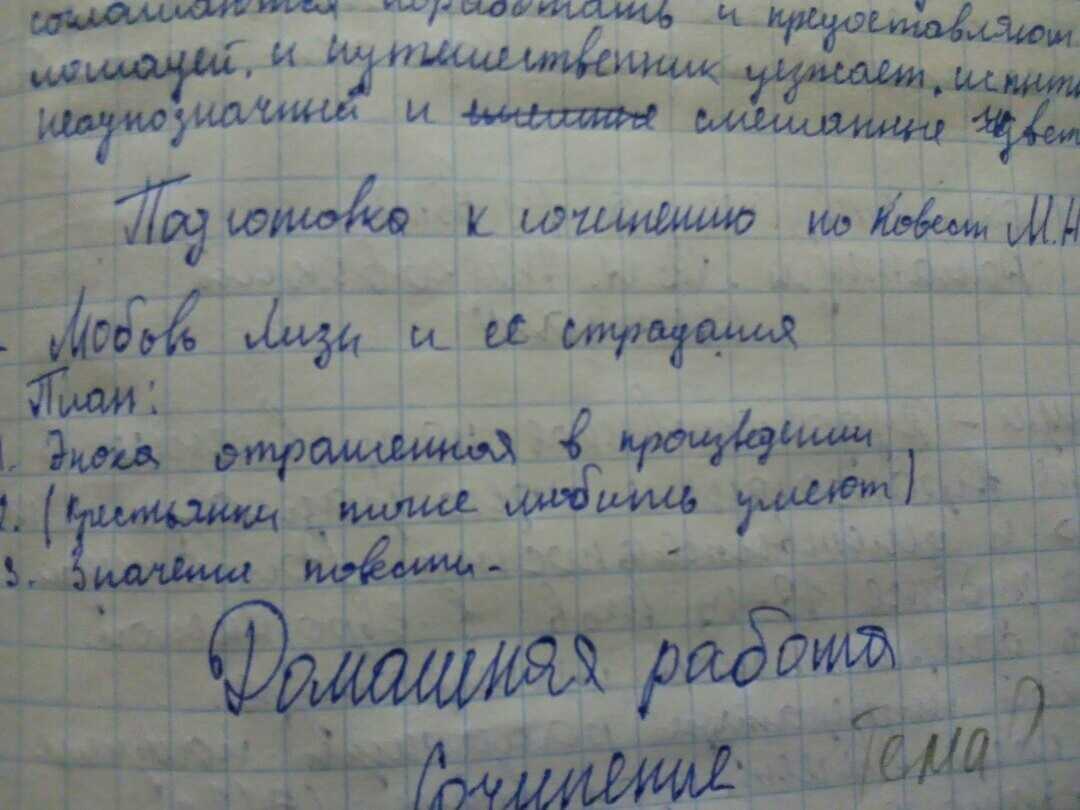 соглашаются поработать и предоставляют
лошадей, и путешественник уезжает, испыты
неоднозначный и смешанные чувст
Подготовка к сочинению по повест М.Н
- Любовь Лизы и её страдания
План:
1. Эпоха отраженная в произведении
2. (Крестьянки тоже любить умеют)
3. Значение повести.
Домашняя работа
Сочинение Тема?